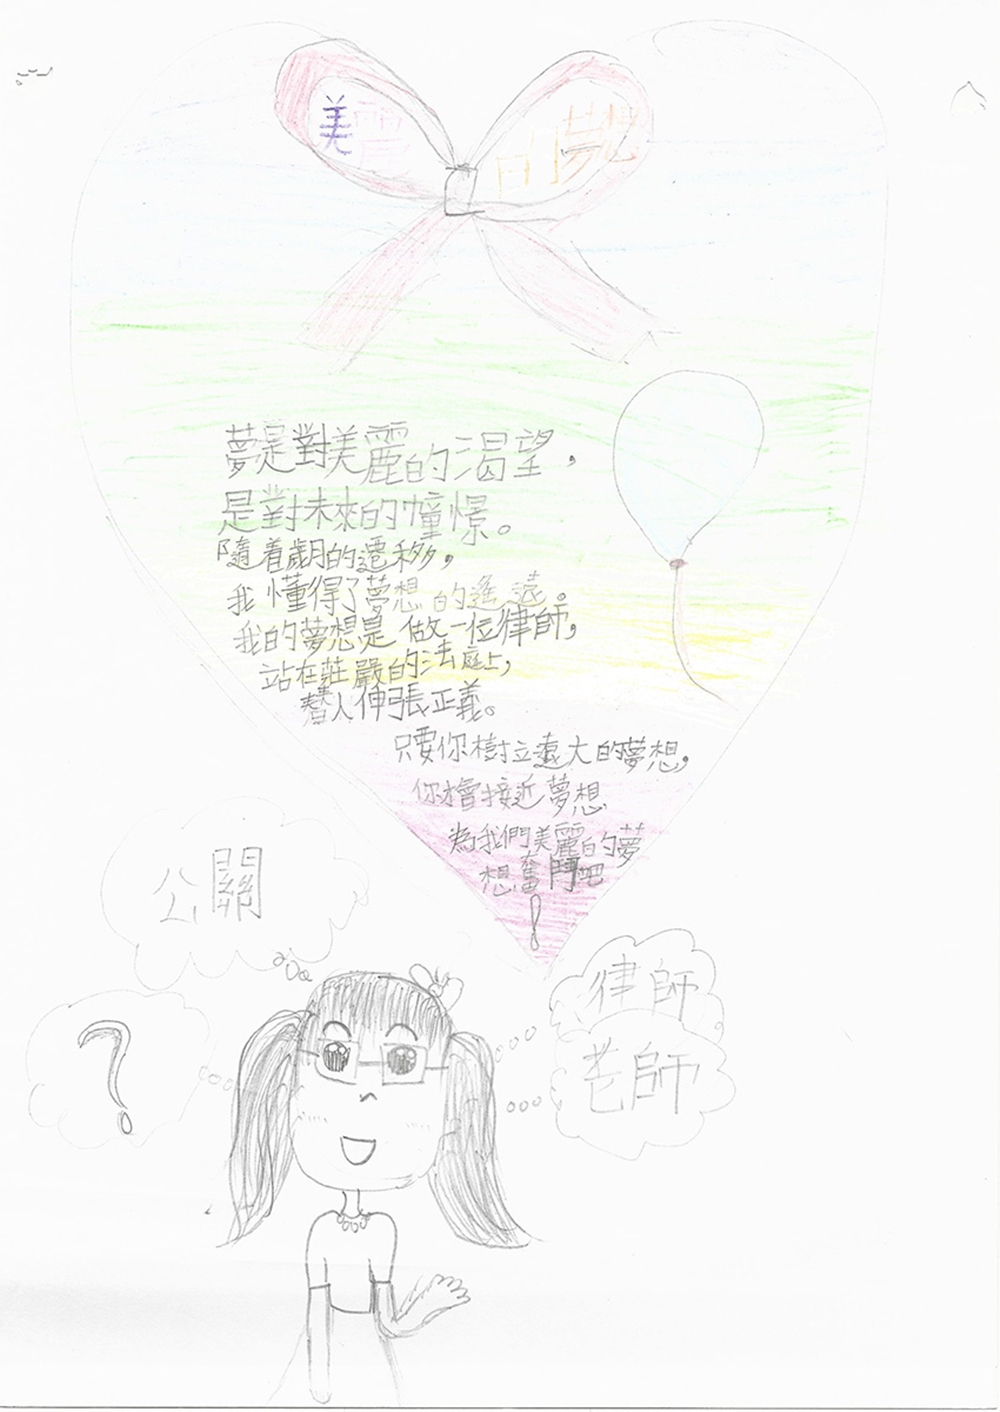 美麗
的夢想
夢是對美麗的渴望，
是對未來的憧憬。
隨着歲月的遷移，
我懂得了夢想的遙遠。
我的夢想是做一位律師，
站在莊嚴的法庭上，
替人伸張正義。
只要你樹立遠大的夢想，
你才會接近夢想
為我們美麗的夢
想奮鬥吧
！
公關
律師
？
老師